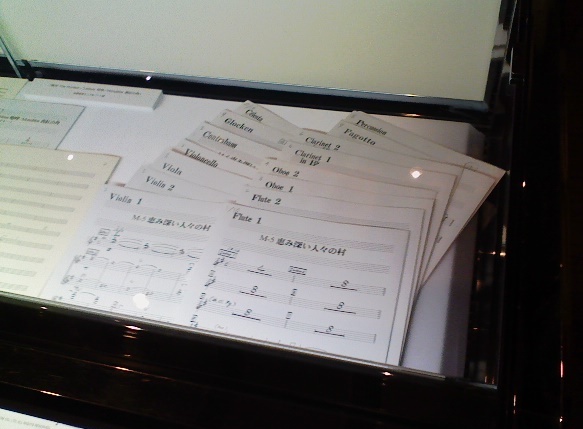 Celesta
Glocken
Contrabass
Violoncello
Viola
Violin 2
Violin 1
M-5 恵み深い人々の村
Percussion
Fagotto
Clarinet 2
Clarinet 1
in B♭
Oboe 2
Oboe 1
Flute 2
Flute 1
M-5 恵み深い人々の村